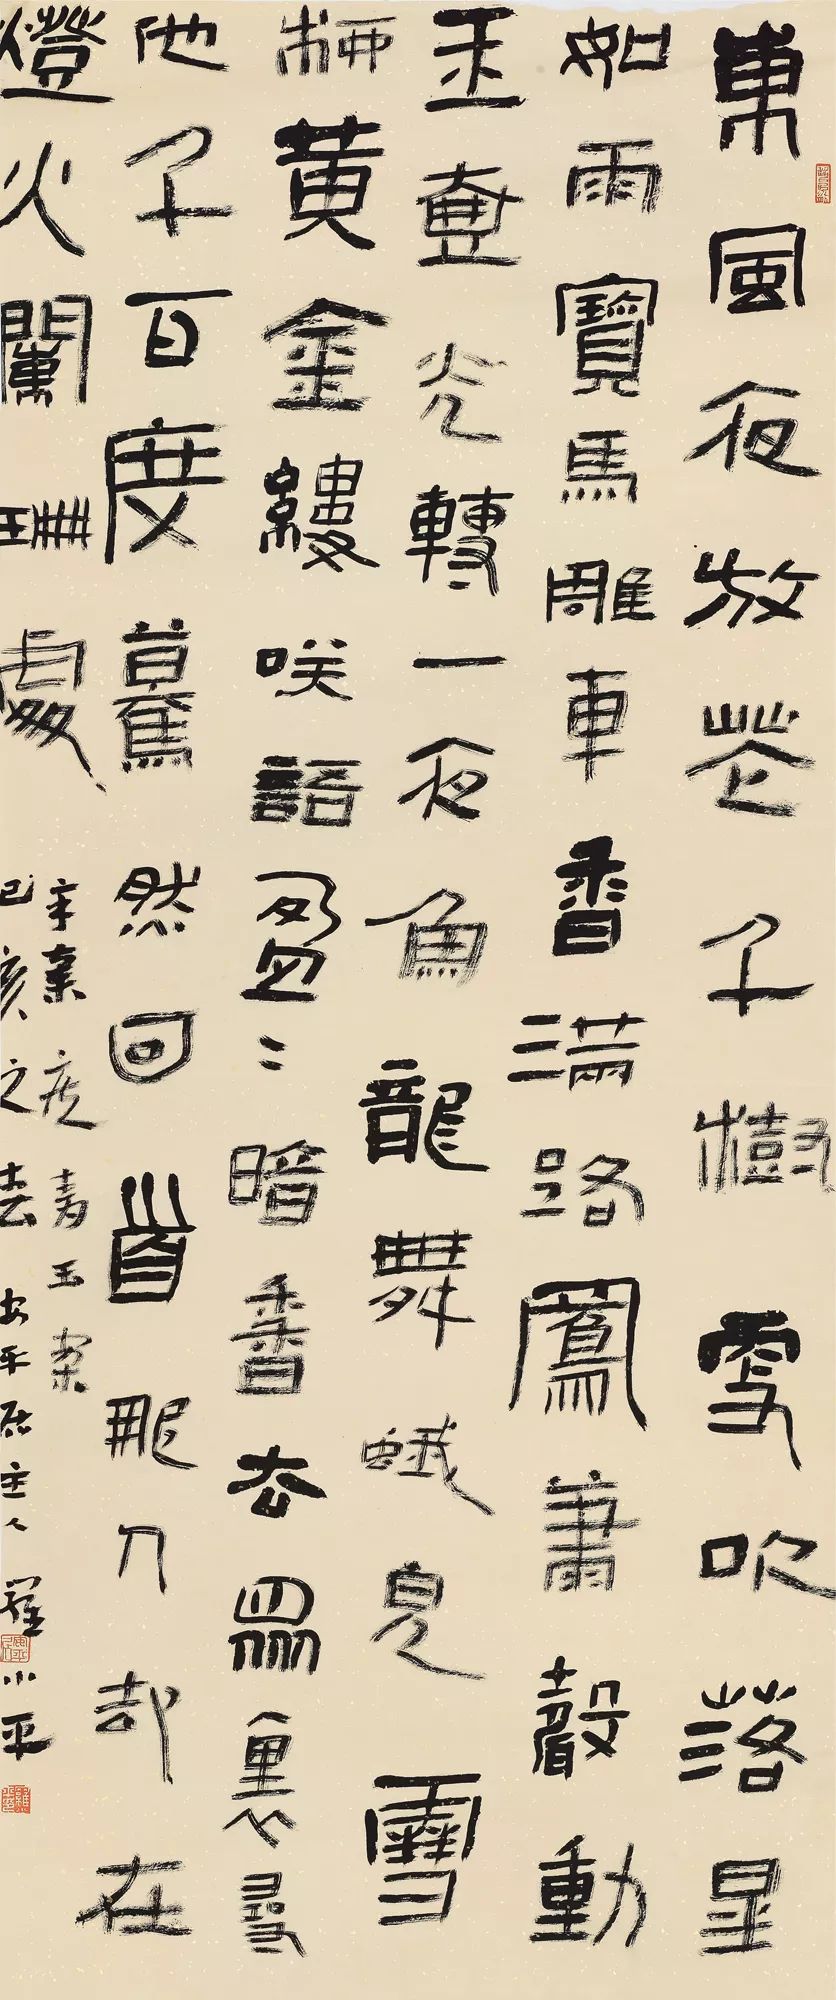 東風夜放花千樹更吹落星
如雨寶馬雕車香滿路鳳簫聲動
玉壺光轉一夜魚龍舞蛾兒雪
柳黃金縷咲語盈〻暗香去眾裏尋
他千百度驀然回首那人却在
燈火闌珊處
辛棄疾青玉案
己亥之 安平居主人羅小平